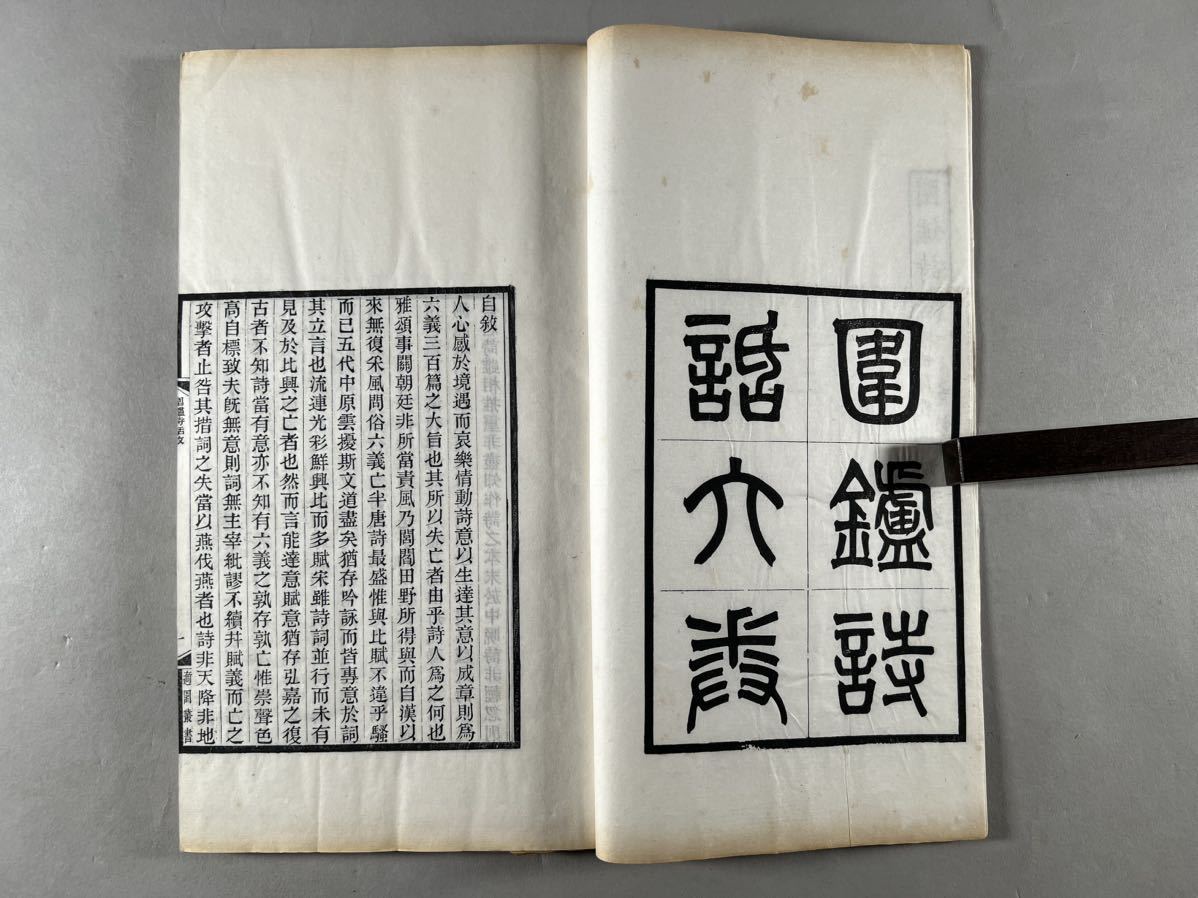 圍鑪詩
話六卷
自敘
人心感於境遇而哀樂情動詩意以生達其意以成章則爲
六義三百篇之大旨也其所以失亡者由乎詩人爲之何也
雅頌事關朝廷非所當責風乃閭閻田野所得與而自漢以
來無復采風問俗六義亡半唐詩最盛惟與比賦不違乎騷
而已五代中原雲擾斯文道盡矣猶存吟詠而皆專意於詞
其立言也流連光彩鮮興比而多賦宋雖詩詞並行而未有
見及於比興之亡者也然而言能達意賦意猶存弘嘉之復
古者不知詩當有意亦不知有六義之孰存孰亡惟崇聲色
高自標致夫旣無意則詞無主宰紕謬不續幷賦義而亡之
攻擊者止咎其措詞之失當以燕伐燕者也詩非天降非地
適園叢書